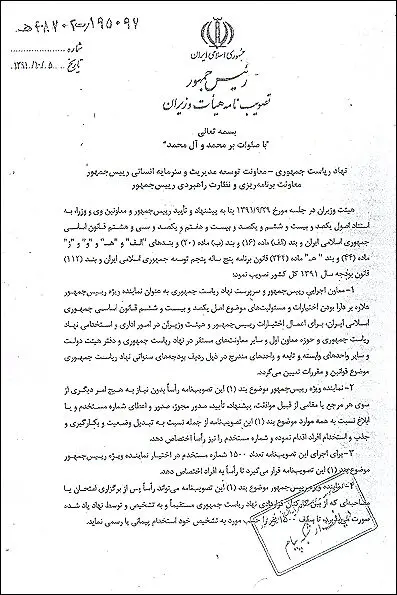 ۱۹۵۰۹۷/ت۴۸۷۰۲هـ
جمهوری اسلامی ایران
شماره
رئیس جمهور
تاریخ ۱۳۹۱/۱۰/۰۵
تصویب نامه هیأت وزیران
بسمه تعالی
"با صلوات بر محمد و آل محمد"
نهاد ریاست جمهوری – معاونت توسعه مدیریت و سرمایه انسانی رییس‌جمهور
معاونت برنامه‌ریزی و نظارت راهبردی رییس‌جمهور
هیئت وزیران در جلسه مورخ ۱۳۹۱/۹/۲۹ بنا به پیشنهاد و تأیید رییس‌جمهور و معاونین وی و وزراء به
استناد اصول یکصد و بیست و ششم و یکصد و بیست و هفتم و یکصد و سی و هشتم قانون اساسی
جمهوری اسلامی ایران و بند (الف) ماده (۱۶) و بند (ب) ماده (۲۰) و بندهای "الف" و "هـ" و "و" و "ز"
ماده (۴۴) و بند "هـ" ماده (۲۲۴) قانون برنامه پنج ساله پنجم توسعه جمهوری اسلامی ایران و بند (۱۱۲)
قانون بودجه سال ۱۳۹۱ کل کشور تصویب نمود:
۱– معاون اجرایی رییس‌جمهور و سرپرست نهاد ریاست جمهوری به عنوان نماینده ویژه رییس‌جمهور
علاوه بر دارا بودن اختیارات و مسئولیت‌های موضوع اصل یکصد و بیست و ششم قانون اساسی جمهوری
اسلامی ایران، برای اعمال اختیارات رییس‌جمهور و هیئت وزیران در امور اداری و استخدامی نهاد
ریاست جمهوری و حوزه معاون اول و سایر معاونت‌های مستقر در نهاد ریاست جمهوری و دفتر هیئت دولت
و سایر واحدهای وابسته و تابعه و واحدهای مندرج در ذیل ردیف بودجه‌های سنواتی نهاد ریاست جمهوری
موضوع قوانین و مقررات تعیین می‌گردد.
۲– نماینده ویژه رییس‌جمهور موضوع بند (۱) این تصویب‌نامه رأساً بدون نیاز به هیچ امر دیگری از
سوی هر مرجع یا مقامی از قبیل موافقت، پیشنهاد، تأیید، صدور مجوز، صدور و اعطای شماره مستخدم و یا
ابلاغ نسبت به همه موارد موضوع بند (۱) این تصویب‌نامه از جمله نسبت به تبدیل وضعیت و بکارگیری و
جذب و استخدام افراد اقدام نموده و شماره مستخدم را نیز رأساً اختصاص دهد.
۳– برای اجرای این تصویب‌نامه تعداد ۱۵۰۰ شماره مستخدم در اختیار نماینده ویژه رییس‌جمهور
موضوع بند (۱) این تصویب‌نامه قرار می‌گیرد تا رأساً به افراد اختصاص دهد.
۴– نماینده ویژه رییس‌جمهور موضوع بند (۱) این تصویب‌نامه می‌تواند رأساً پس از برگزاری امتحان یا
مصاحبه‌ای که از بین کارکنان قراردادی نهاد ریاست جمهوری مستقیماً و به تشخیص و توسط نهاد یاد شده
صورت می‌پذیرد، تا سقف ۱۵۰۰ نفر را حسب مورد به تشخیص خود استخدام پیمانی یا رسمی نماید.
۱